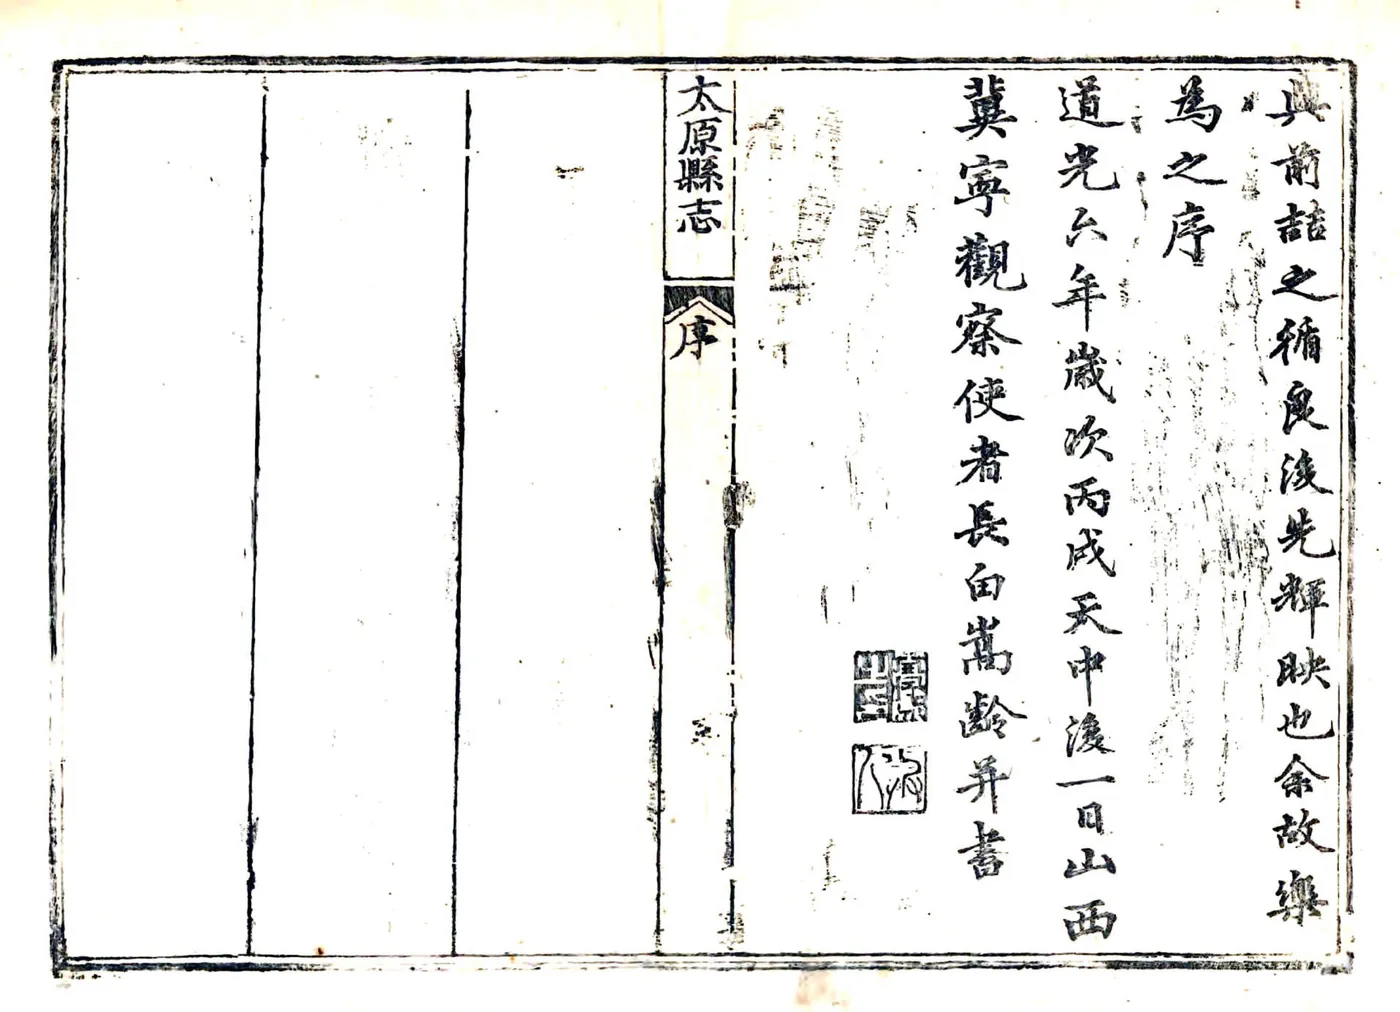 與前喆之循良後先輝映也余故樂
為之序
道光六年歲次丙戌天中後一日山西
冀寧觀察使者長白嵩齡并書
太原縣志
序